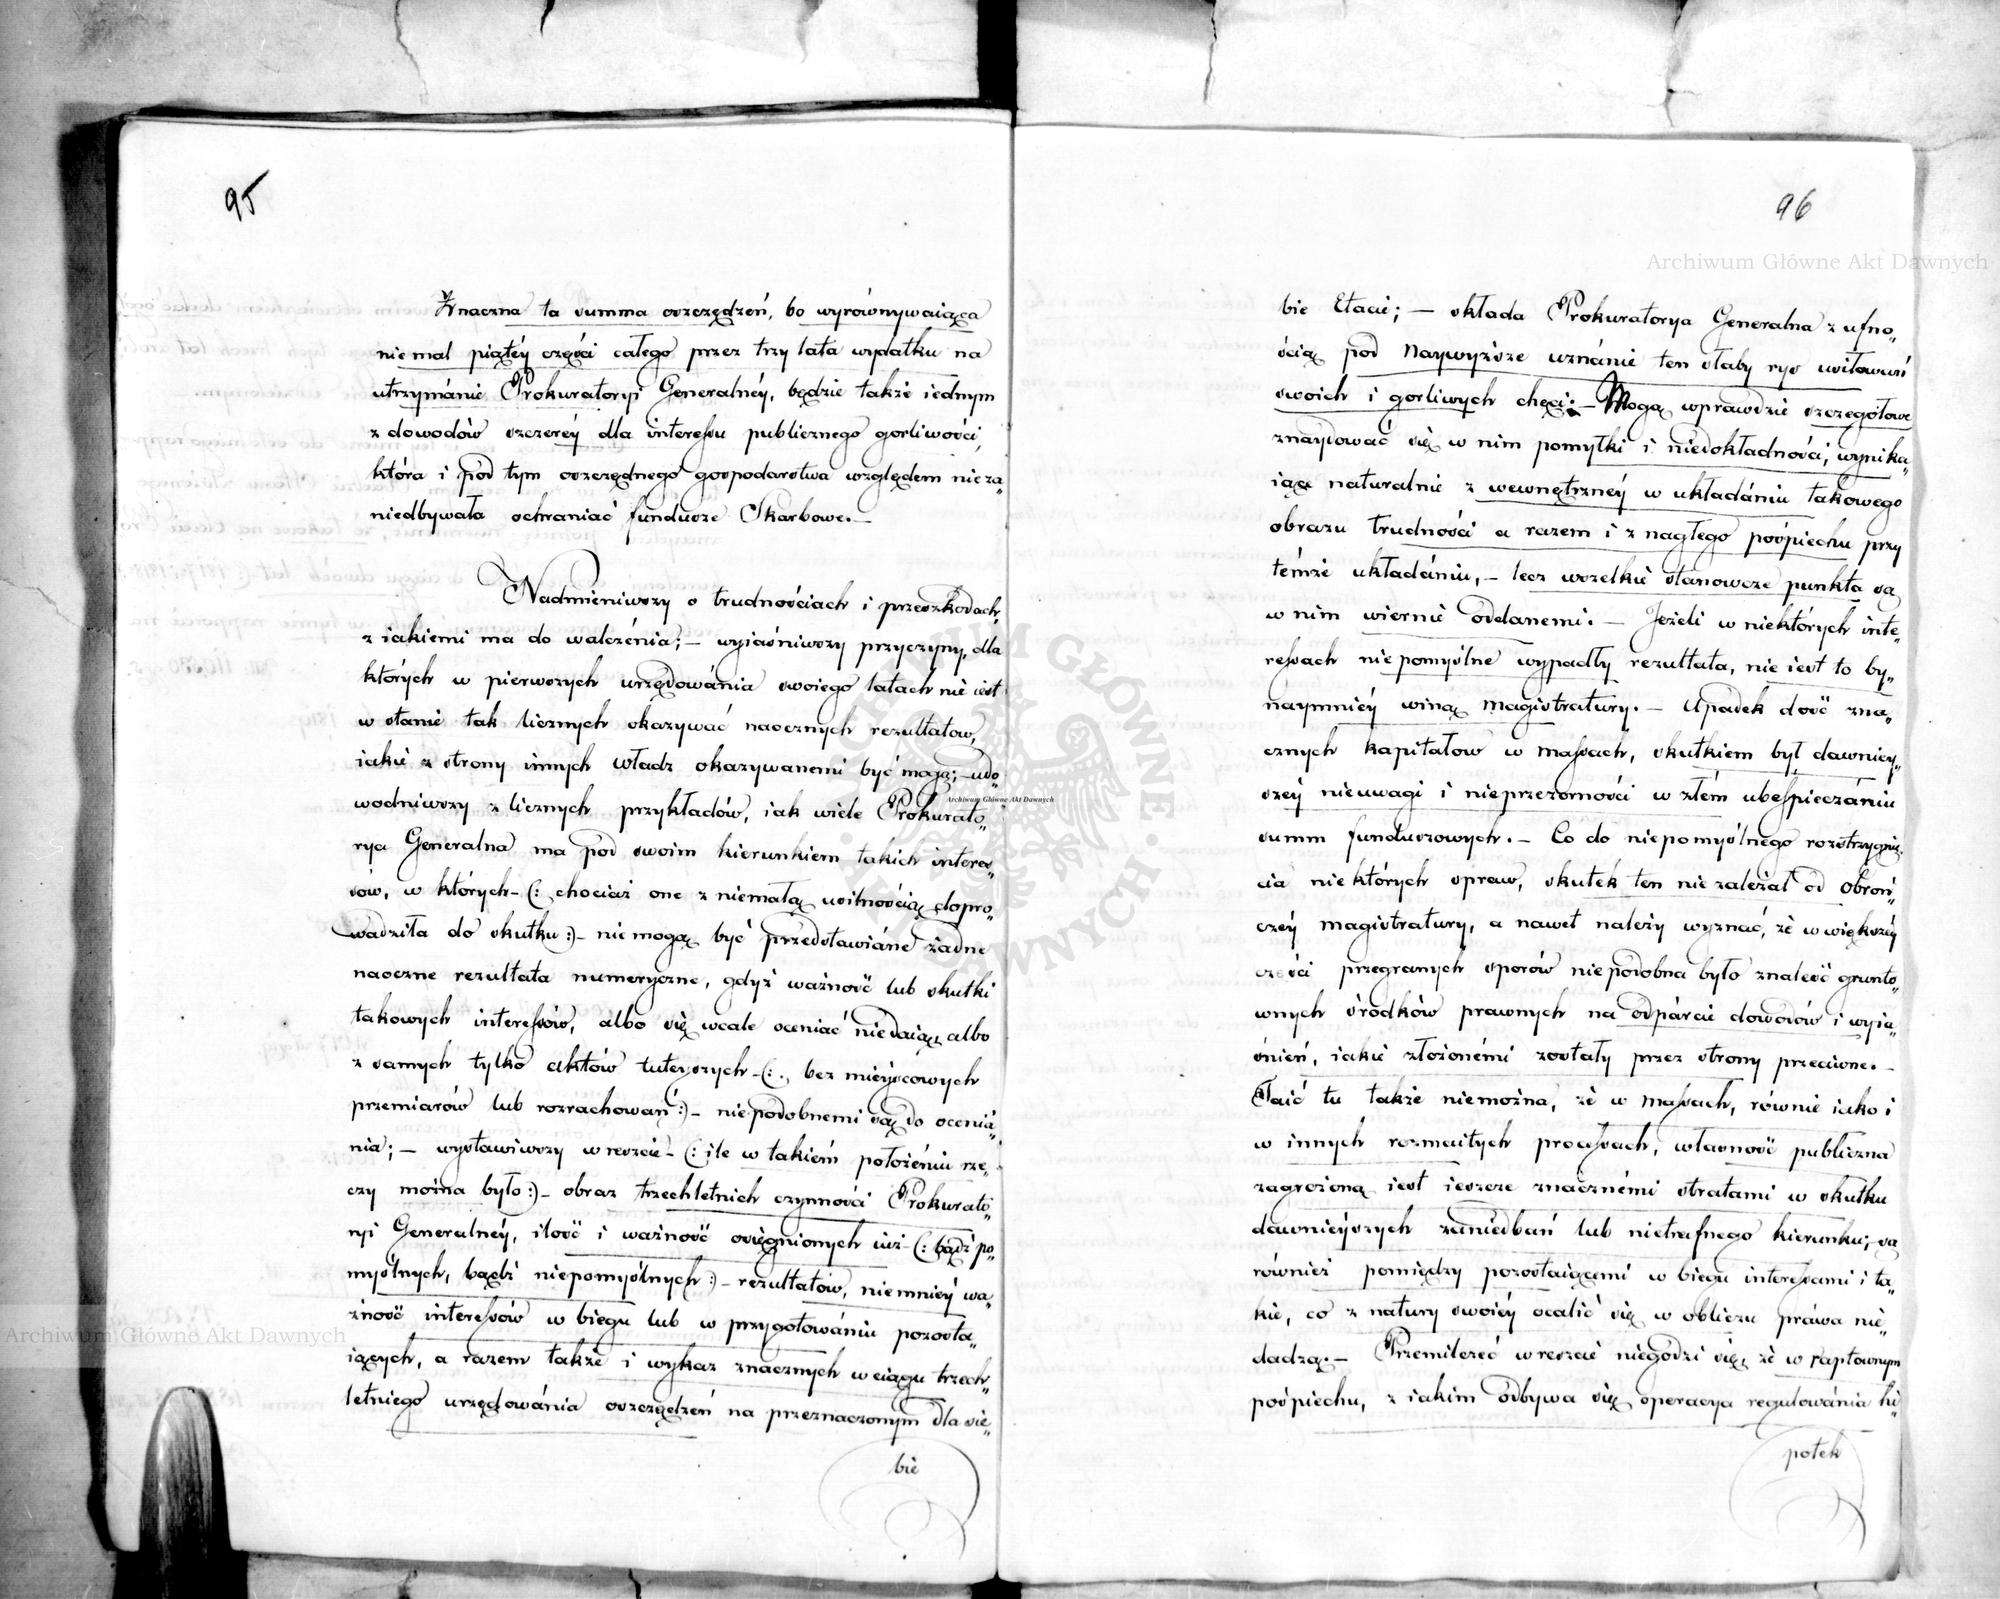 95
Znaczna ta summa oszczędzeń, bo wyrównywaiąca
niemal piątéy części całego przez trzy lata wydatku na
utrzymánie Prokuratoryi Generalnéy, będzie także iednym
z dowodów szczeréy dla interessu publicznego gorliwości,
która i pod tym oszczędnego gospodarstwa względem nie za„
niedbywała ochraniać fundusze Skarbowe. —
Nadmieniwszy o trudnościach i przeszkodach,
z iakiemi ma do walczénia; — wyiaśniwszy przyczyny, dla
których w pierwszych urzędowánia swoiego latach nie iest
w stanie tak licznych okazywać naocznych rezultatow,
iakie z strony innych Władz okazywanemi być mogą; — udo„
wodniwszy z licznych przykładów, iak wiele Prokurato„
rya Generalna ma pod swoim kierunkiem takich interes„
sów, w których — (: chociaż one z niemałą usilnością dopro„
wadziła do skutku :) — nie mogą być przedstawiáne żadne
naoczne rezultata numeryczne, gdyż ważność lub skutki
takowych interessów, albo się wcale oceniać niedaią, albo
z samych tylko aktów tuteyszych — (: bez mieyscowych
przemiarów lub rozrachowań :) — niepodobnemi są do ocenia„
nia; — wystawiwszy wreszcie — (: ile w takiém położéniu rze„
czy można było :) — obraz trzechletnich czynności Prokurato„
ryi Generalnéy, ilość i ważność osiągnionych iuż — (: bądź po„
myślnych, bądź niepomyślnych :) — rezultatów, niemniéy wa„
żność interessów w biegu lub w przygotowániu pozosta„
iących, a razem także i wykaz znacznych w ciągu trzech„
letniego urzędowánia oszczędzeń na przeznaczonym dla sie„
bie
96
bie Etacie; — składa Prokuratorya Generalna z ufno„
ścią pod Naywyższe uznánie ten słaby rys usiłowań
swoich i gorliwych chęci: — Mogą wprawdzie szczegółowe
znaydować się w nim pomyłki i niedokładności, wynika„
iące naturalnie z wewnętrznéy w układániu takowego
obrazu trudności a razem i z nagłego pośpiechu przy
témże układániu, — lecz wszelkie stanowcze punkta są
w nim wiernie oddanemi. — Jeżeli w niektórych inte„
ressach niepomyślne wypadły rezultata, nie iest to by„
naymniéy winą magistratury. — Upadek dość zna„
cznych kapitałow w massach, skutkiem był dawniey„
széy nieuwagi i nieprzezorności w złém ubespieczániu
summ funduszowych. — Co do niepomyślnego rozstrzygnię„
cia niektórych spraw, skutek ten nie zależał od obroń„
czéy magistratury, a nawet należy wyznać, że w większéy
części przegranych sporów niepodobna było znaleść grunto„
wnych środków prawnych na odpárcie dowodów i wyia„
śnień, iakie złożonémi zostały przez strony przeciwne. —
Taić tu także niemożna, że w massach, równie iako i
w innych rozmaitych processach, własność publiczna
zagrożoną iest ieszcze znacznémi stratami w skutku
dawnieyszych zaniedbań lub nietrafnego kierunku; są
również pomiędzy pozostaiącemi w biegu interessami i ta„
kie, co z natury swoiéy ocalić się w obliczu práwa nie„
dadzą. — Przemilczéć wreszcie niegodzi się, że w raptownym
pośpiechu, z iakim odbywa się operacya regulowánia hi„
potek
Archiwum Główne Akt Dawnych
Archiwum Główne Akt Dawnych
Archiwum Główne Akt Dawnych
ARCHIWUM GŁÓWNE AKT DAWNYCH